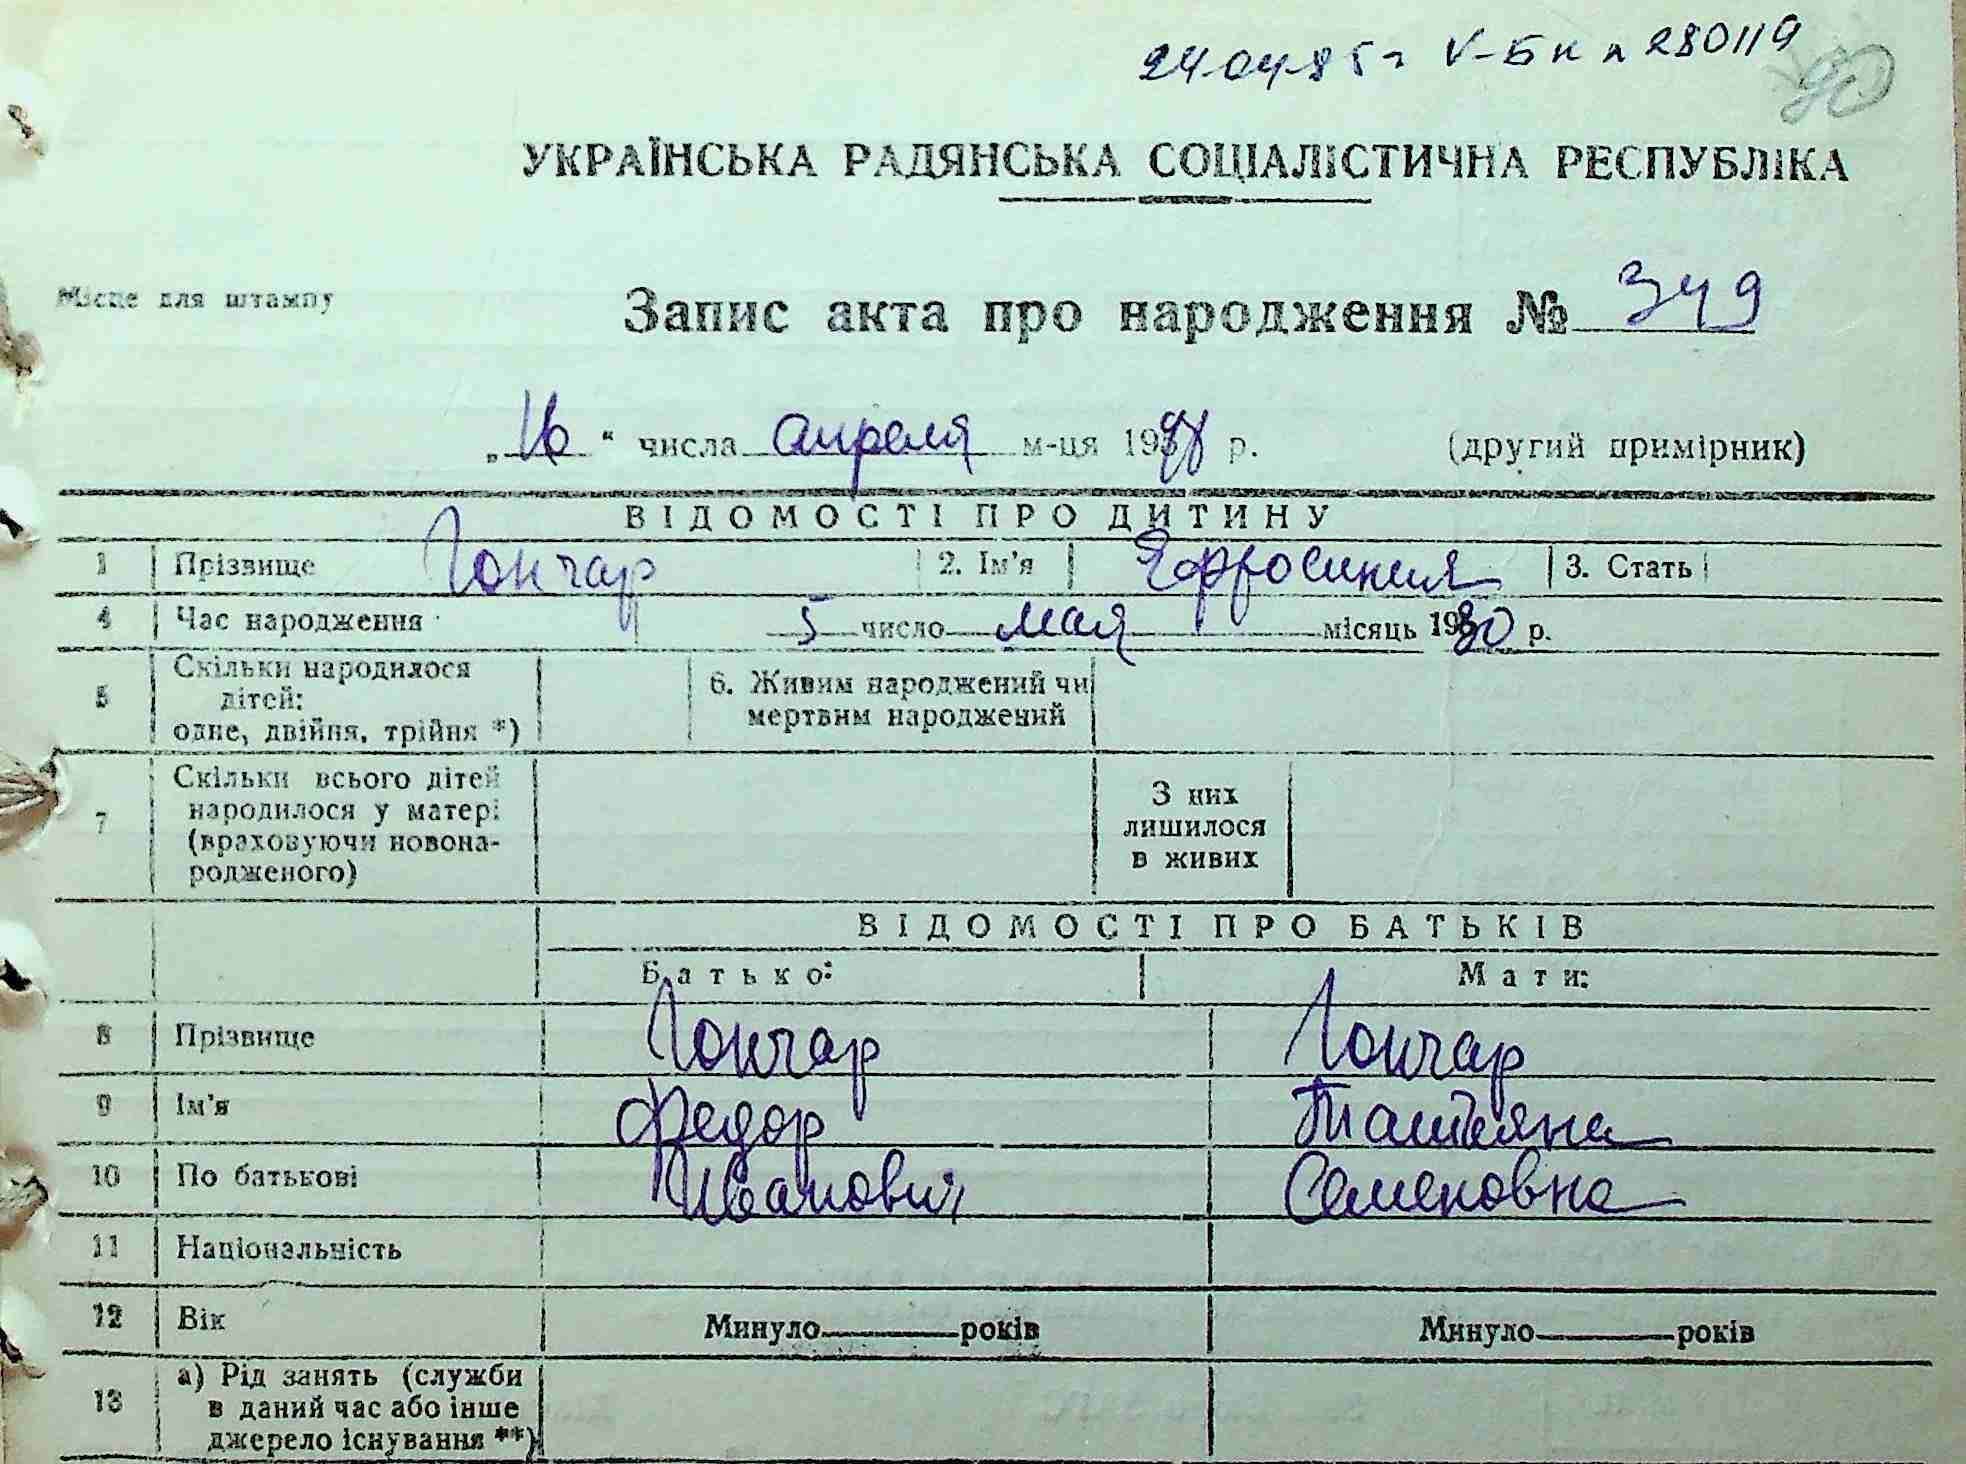 24-04-85 г V-БК n 280119
УКРАЇНСЬКА РАДЯНСЬКА СОЦІАЛІСТИЧНА РЕСПУБЛІКА
Місце для штампу
Запис акта про народження № 349
„16“ числа апреля м-ця 1948 р. (другий примірник)
ВІДОМОСТІ ПРО ДИТИНУ
1 Прізвище Гончар 2. Ім'я Ефросиния 3. Стать
4 Час народження 5 число мая місяць 1930 р.
5 Скільки народилося дітей: одне, двійня, трійня *) 6. Живим народжений чи мертвим народжений
7 Скільки всього дітей народилося у матері (враховуючи новонародженого) З них лишилося в живих
ВІДОМОСТІ ПРО БАТЬКІВ
Батько: Мати:
8 Прізвище Гончар Гончар
9 Ім'я Федор Татьяна
10 По батькові Иванович Семеновна
11 Національність
12 Вік Минуло роківМинуло років
13 а) Рід занять (служби в даний час або інше джерело існування **)